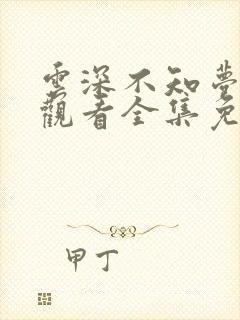 雲深不知夢
觀看全集免
甲丁